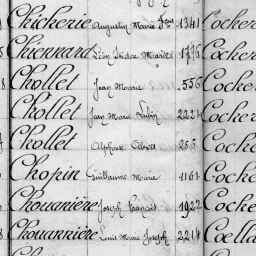 Chickerie Augustin Marie 1341 Cocker
Chiennard Léon Isidore 1776 Cocker
Chollet Jean Marie 556 Cocker
Chollet Jean Marie 2224 Cocker
Chollet Alphonse 256 Cocke
Chopin Guillaume Marie 1161 Cocke
Chouanière Joseph François 1922 Cocke
Chouannière Louis Marie Joseph 2214 Coella